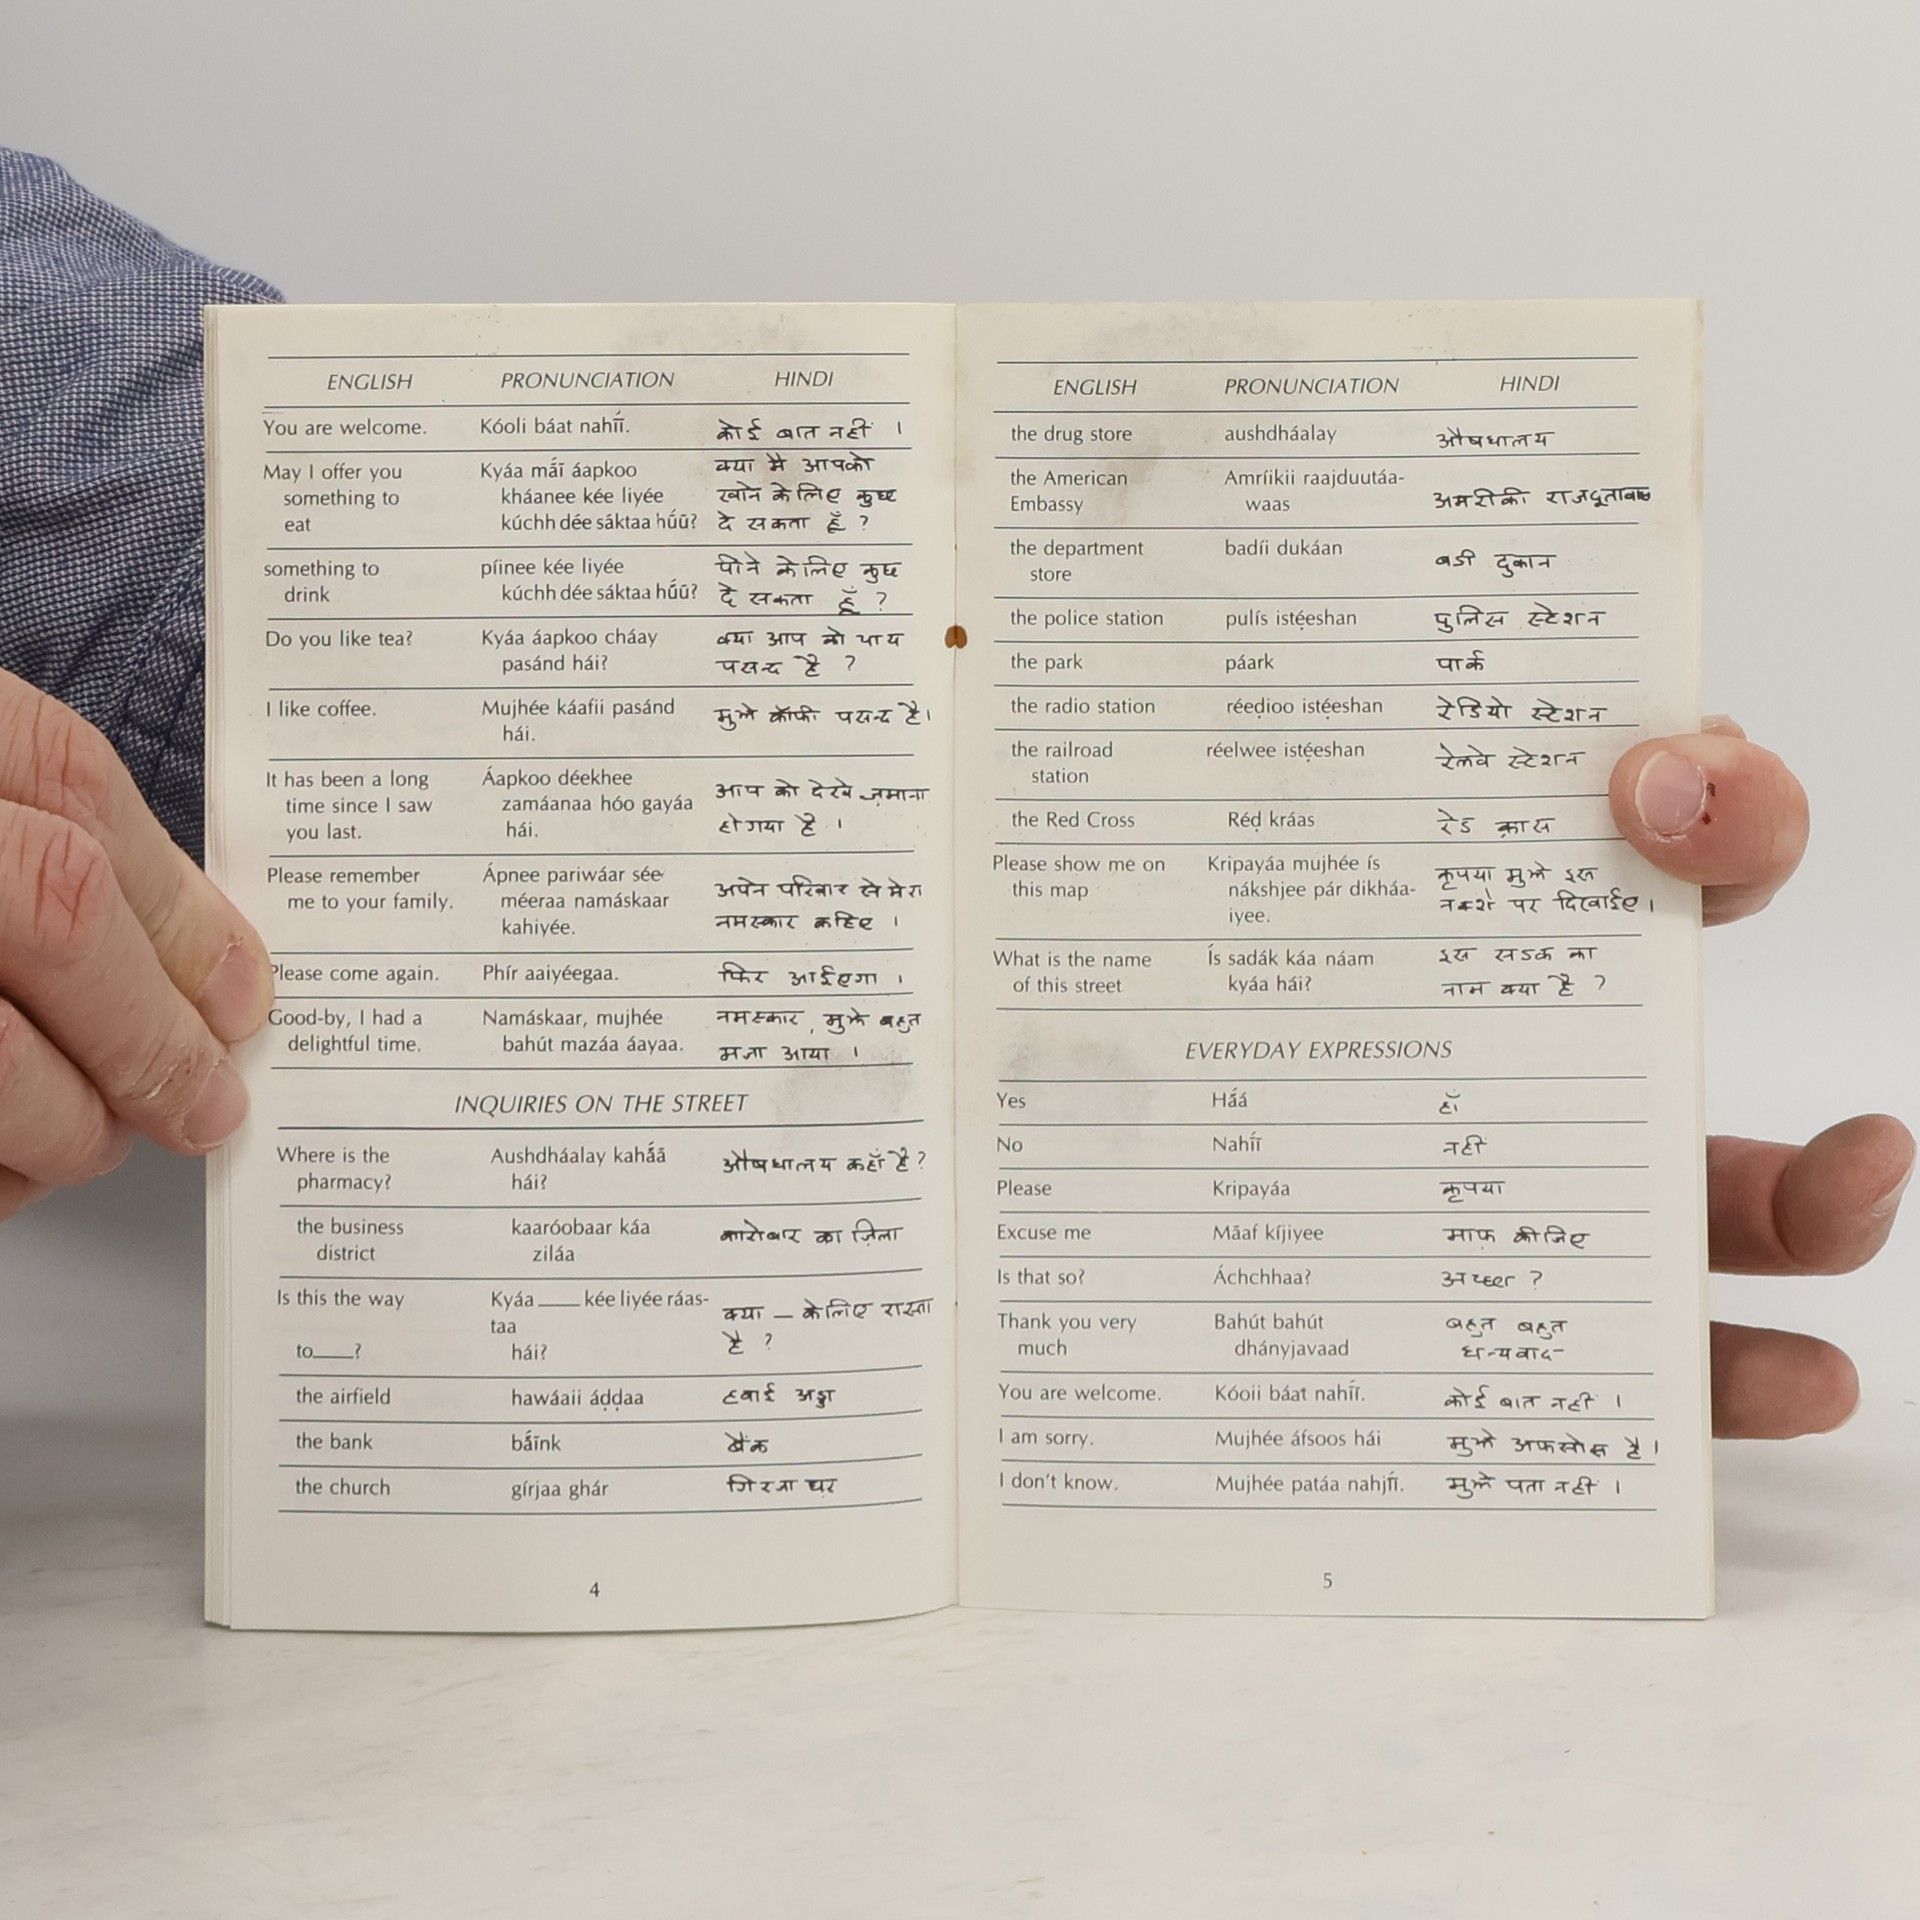 ENGLISH PRONUNCIATION HINDI
You are welcome. Kóoli báat nahíĩ. कोई बात नहीं ।
May I offer you Kyáa mãĩ áapkoo क्या मै आपको
something to kháanee kée liyée खाने के लिए कुछ
eat kúchh dée sáktaa hṹũ? दे सकता हूँ ?
something to píinee kée liyée पीने के लिए कुछ
drink kúchh dée sáktaa hṹũ? दे सकता हूँ ?
Do you like tea? Kyáa áapkoo cháay क्या आप को चाय
pasánd hái? पसन्द है ?
I like coffee. Mujhée káafii pasánd मुझे कॉफी पसन्द है।
hái.
It has been a long Áapkoo déekhee
time since I saw zamáanaa hóo gayáa आप को देखे ज़माना
you last. hái. हो गया है ।
Please remember Ápnee pariwáar sée अपने परिवार से मेरा
me to your family. méeraa namáskaar नमस्कार कहिए ।
kahiyée.
Please come again. Phír aaiyéegaa. फिर आईएगा ।
Good-by, I had a Namáskaar, mujhée नमस्कार, मुझे बहुत
delightful time. bahút mazáa áayaa. मजा आया ।
INQUIRIES ON THE STREET
Where is the Aushdháalay kahã́ã औषधालय कहाँ है ?
pharmacy? hái?
the business kaaróobaar káa कारोबार का ज़िला
district ziláa
Is this the way Kyáa ____ kée liyée ráas- क्या — के लिए रास्ता
taa है ?
to____? hái?
the airfield hawáaii áḍḍaa हवाई अड्डा
the bank bã́ĩnk बैंक
the church gírjaa ghár गिरजा घर
4
ENGLISH PRONUNCIATION HINDI
the drug store aushdháalay औषधालय
the American Amríikii raajduutáa- अमरीकी राजदूतावास
Embassy waas
the department badíi dukáan बडी दुकान
store
the police station pulís istẹ́eshan पुलिस स्टेशन
the park páark पार्क
the radio station réeḍioo istẹ́eshan रेडियो स्टेशन
the railroad réelwee istẹ́eshan रेलवे स्टेशन
station
the Red Cross Réḍ kráas रेड क्रास
Please show me on Kripayáa mujhée ís कृपया मुझे इस
this map nákshjee pár dikháa- नक्शे पर दिखाईए ।
iyee.
What is the name Ís sadák káa náam इस सडक का
of this street kyáa hái? नाम क्या है ?
EVERYDAY EXPRESSIONS
Yes Hã́á हाँ
No Nahíĩ नही
Please Kripayáa कृपया
Excuse me Mãaf kíjiyee माफ़ कीजिए
Is that so? Áchchhaa? अच्छा ?
Thank you very Bahút bahút बहुत बहुत
much dhányjavaad धन्यवाद
You are welcome. Kóoii báat nahíĩ. कोई बात नहीं ।
I am sorry. Mujhée áfsoos hái मुझे अफसोस है ।
I don't know. Mujhée patáa nahjíĩ. मुझे पता नहीं ।
5